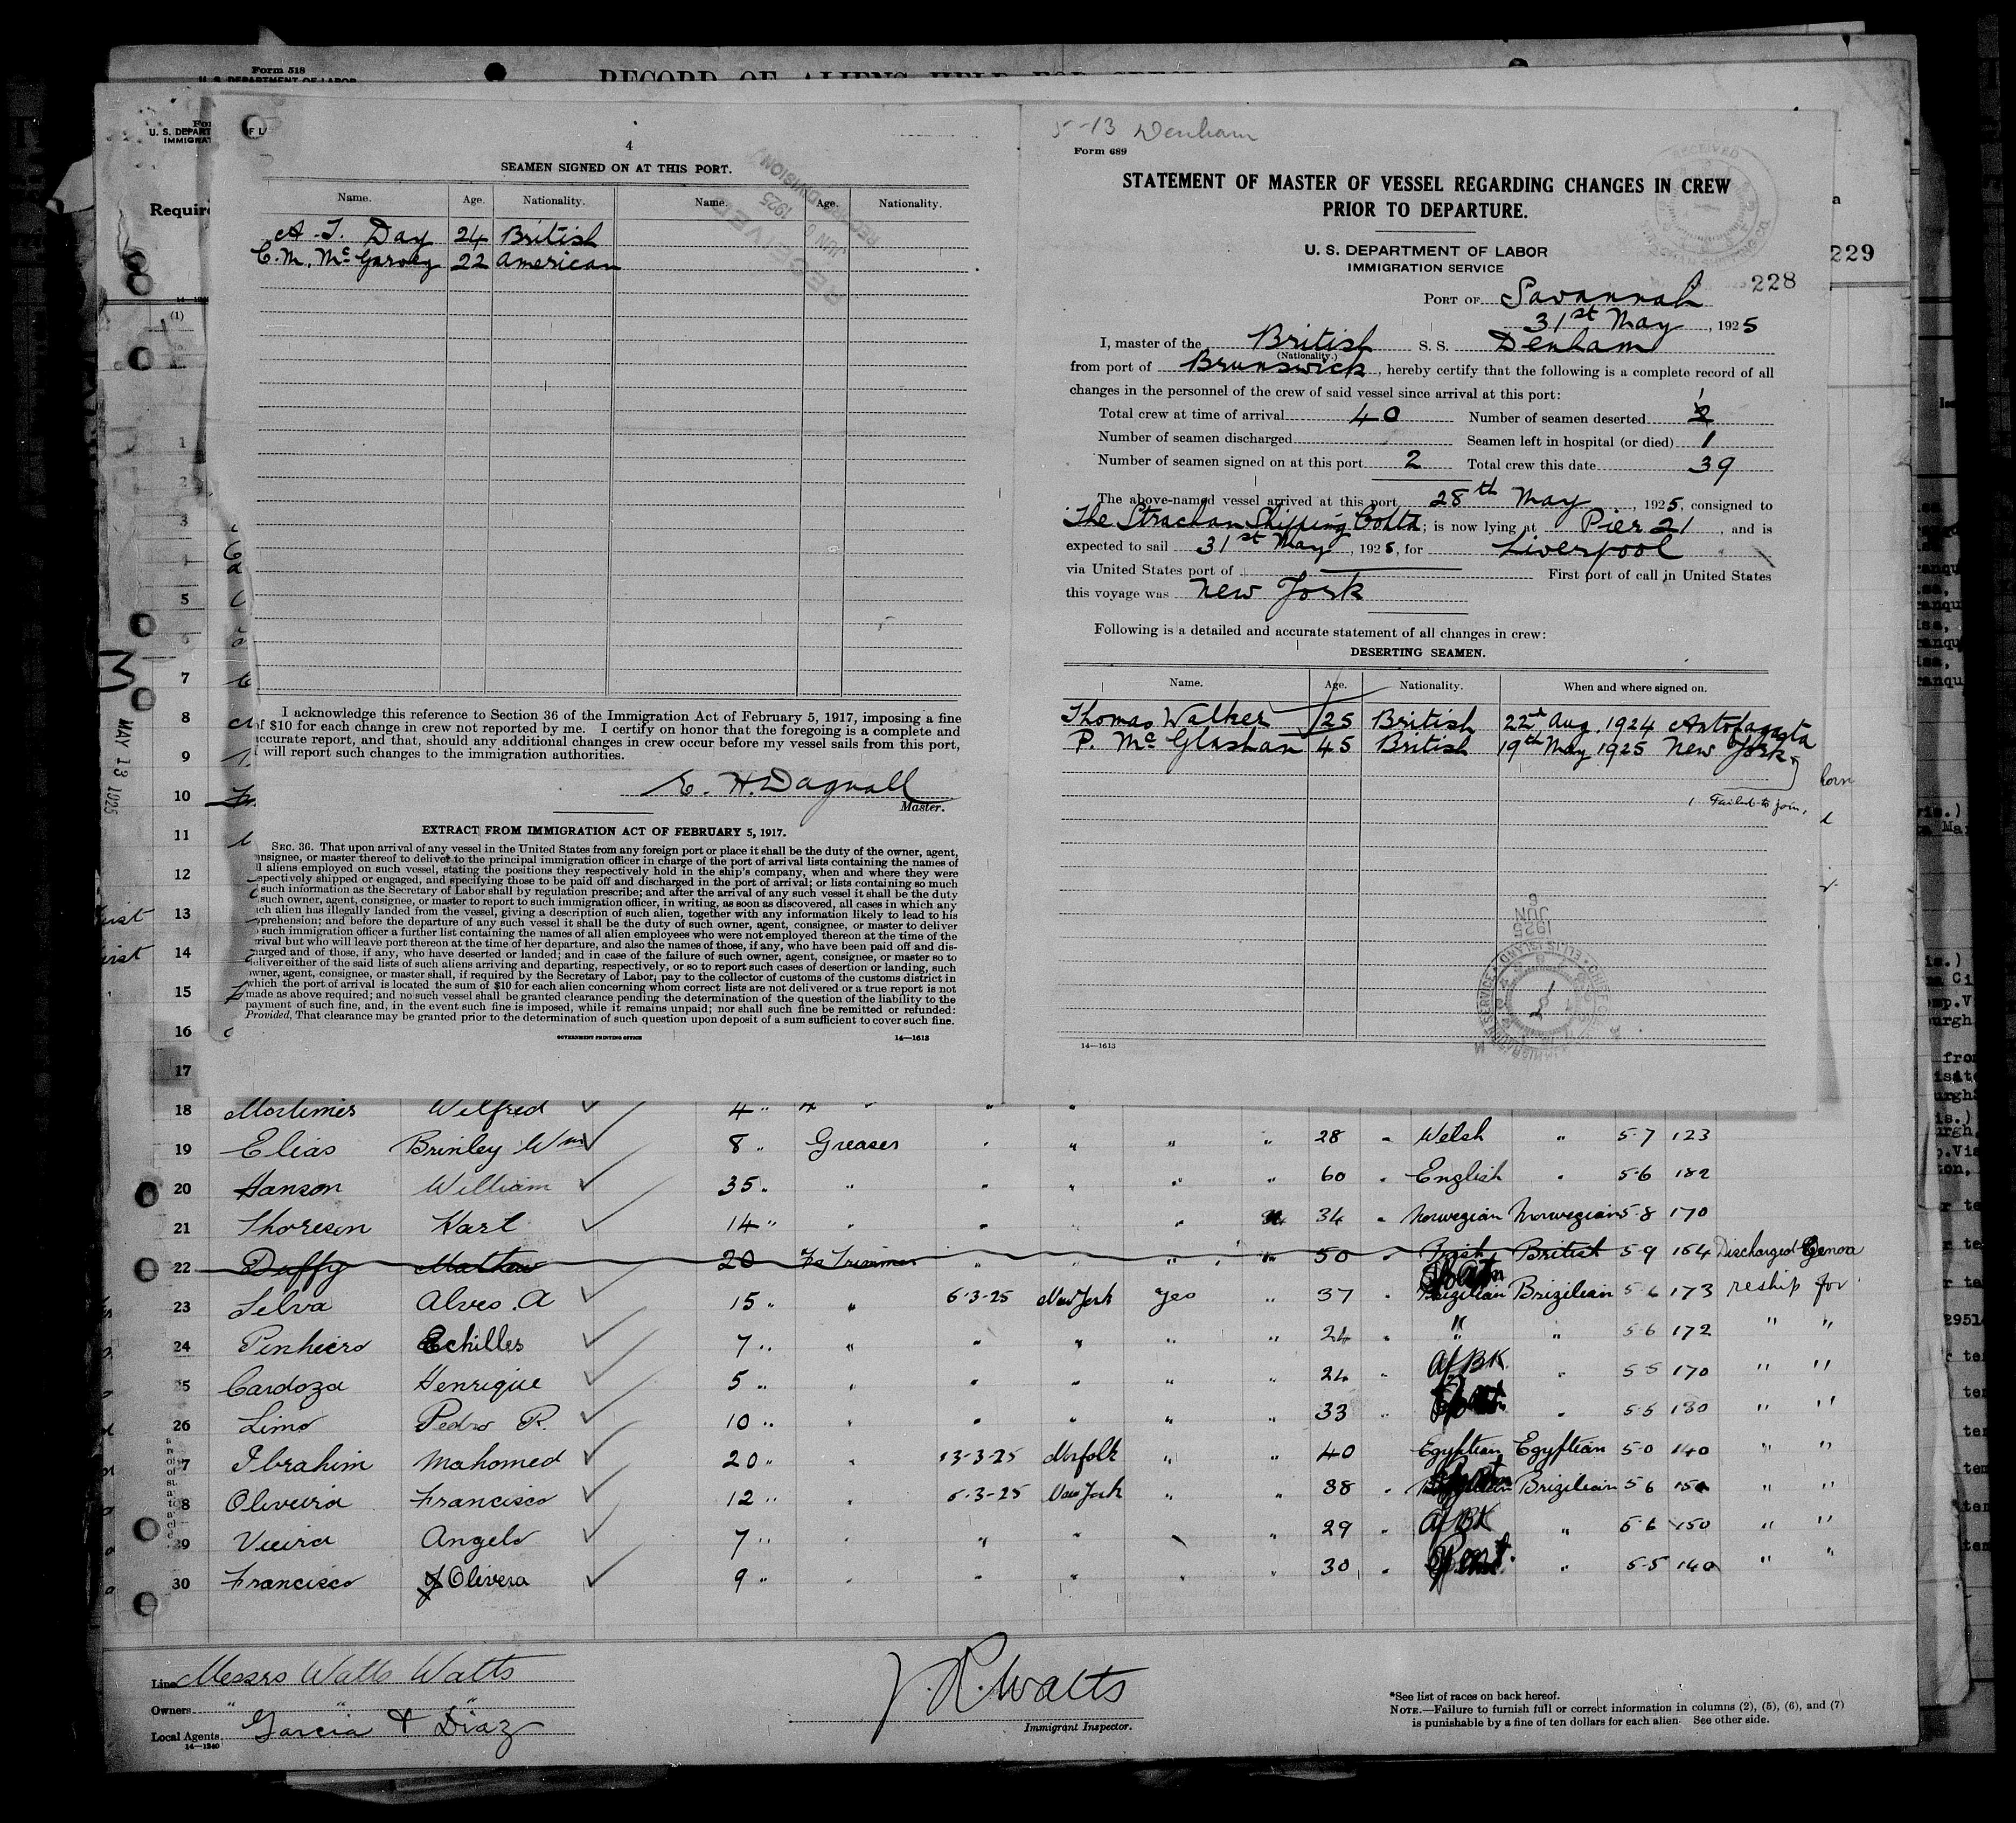 Form 518
U. S. DEPARTMENT OF LABOR
RECORD OF ALIENS HELD FOR
U. S. DEPART
IMMIGRAT
Require
4
SEAMEN SIGNED ON AT THIS PORT.
Name. Age. Nationality. Name. Age. Nationality.
A. J. Day 24 British
C. M. McGarvey 22 American
I acknowledge this reference to Section 36 of the Immigration Act of February 5, 1917, imposing a fine
of $10 for each change in crew not reported by me. I certify on honor that the foregoing is a complete and
accurate report, and that, should any additional changes in crew occur before my vessel sails from this port,
I will report such changes to the immigration authorities.
E. H. Dagnall
Master.
EXTRACT FROM IMMIGRATION ACT OF FEBRUARY 5, 1917.
SEC. 36. That upon arrival of any vessel in the United States from any foreign port or place it shall be the duty of the owner, agent,
onsignee, or master thereof to deliver to the principal immigration officer in charge of the port of arrival lists containing the names of
ll aliens employed on such vessel, stating the positions they respectively hold in the ship's company, when and where they were
spectively shipped or engaged, and specifying those to be paid off and discharged in the port of arrival; or lists containing so much
such information as the Secretary of Labor shall by regulation prescribe; and after the arrival of any such vessel it shall be the duty
such owner, agent, consignee, or master to report to such immigration officer, in writing, as soon as discovered, all cases in which any
ch alien has illegally landed from the vessel, giving a description of such alien, together with any information likely to lead to his
prehension; and before the departure of any such vessel it shall be the duty of such owner, agent, consignee, or master to deliver
such immigration officer a further list containing the names of all alien employees who were not employed thereon at the time of the
rrival but who will leave port thereon at the time of her departure, and also the names of those, if any, who have been paid off and dis-
harged and of those, if any, who have deserted or landed; and in case of the failure of such owner, agent, consignee, or master so to
deliver either of the said lists of such aliens arriving and departing, respectively, or so to report such cases of desertion or landing, such
owner, agent, consignee, or master shall, if required by the Secretary of Labor, pay to the collector of customs of the customs district in
which the port of arrival is located the sum of $10 for each alien concerning whom correct lists are not delivered or a true report is not
made as above required; and no such vessel shall be granted clearance pending the determination of the question of the liability to the
payment of such fine, and, in the event such fine is imposed, while it remains unpaid; nor shall such fine be remitted or refunded:
Provided, That clearance may be granted prior to the determination of such question upon deposit of a sum sufficient to cover such fine.
GOVERNMENT PRINTING OFFICE 14—1613
5-13 Denham
Form 689
STATEMENT OF MASTER OF VESSEL REGARDING CHANGES IN CREW
PRIOR TO DEPARTURE.
U. S. DEPARTMENT OF LABOR
IMMIGRATION SERVICE
229
228
PORT OF Savannah
31st May, 1925
I, master of the British S. S. Denham
(Nationality.)
from port of Brunswick, hereby certify that the following is a complete record of all
changes in the personnel of the crew of said vessel since arrival at this port:
Total crew at time of arrival 40 Number of seamen deserted 2 1
Number of seamen discharged Seamen left in hospital (or died) 1
Number of seamen signed on at this port 2 Total crew this date 39
The above-named vessel arrived at this port 28th May, 1925, consigned to
The Strachan Shipping Co Ltd; is now lying at Pier 21, and is
expected to sail 31st May, 1925, for Liverpool
via United States port of First port of call in United States
this voyage was New York
Following is a detailed and accurate statement of all changes in crew:
DESERTING SEAMEN.
Name. Age. Nationality. When and where signed on.
Thomas Walker 25 British 22nd Aug. 1924 Antofagasta
P. McGlashan 45 British 19th May 1925 New York
Failed to join.
JUN 6 1925
14—1613
MAY 13 1925
18 Mortimer Wilfred 4 "
19 Elias Brinley Wm 8 " Greaser " " " " 28 " Welsh " 5-7 123
20 Hanson William 35 " " " " " " 60 " English " 5-6 182
21 Thoresen Karl 14 " " " " " 34 " Norwegian Norwegian 5-8 170
22 Duffy Mathew 20 Fs Trimmer " " " " 50 " Irish British 5-9 164 Discharged Genoa
23 Silva Alves. A 15 " " 6-3-25 New York Yes " 37 " Brizilian Brizilian 5-6 173 reship for
24 Penhiero Echilles 7 " " " " " " 24 " " " 5-6 172 " "
25 Cardoza Henrique 5 " " " " " " 24 " Af. BK. " 5-5 170 " "
26 Limo Pedro R. 10 " " " " " " 33 " " 5-5 180 " "
27 Ibrahim Mahomed 20 " " 13-3-25 Norfolk " " 40 Egyptian Egyptian 5-0 140 " "
28 Oliveira Francisco 12 " " 6-3-25 New York " " 38 " Brizilian 5-6 150 " "
29 Vieira Angelo 7 " " " " " 29 " Af BK " 5-6 150 " "
30 Francisco J Olivera 9 " " " " " " 30 " Port. " 5-5 140 " "
Line Messrs Watts Watts
Owners " " "
Local Agents Garcia & Diaz
14—1240
J. R. Watts
Immigrant Inspector.
*See list of races on back hereof.
NOTE.—Failure to furnish full or correct information in columns (2), (5), (6), and (7)
is punishable by a fine of ten dollars for each alien. See other side.